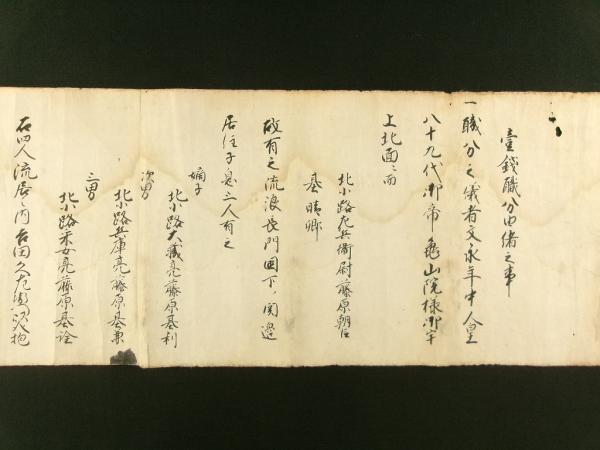 壹錢職分由緒之事
一職分之儀者文永年中人皇
八十九代御帝龜山院様御宇
上北面之而
北小路左兵衛尉藤原朝臣
基晴卿
故有之流浪長門國下ノ関邊
居住子息三人有之
嫡子
北小路大藏亮藤原基利
次男
北小路兵庫亮藤原基兼
三男
北小路采女亮藤原基詮
右四人流居之内吉田久左衛門抱